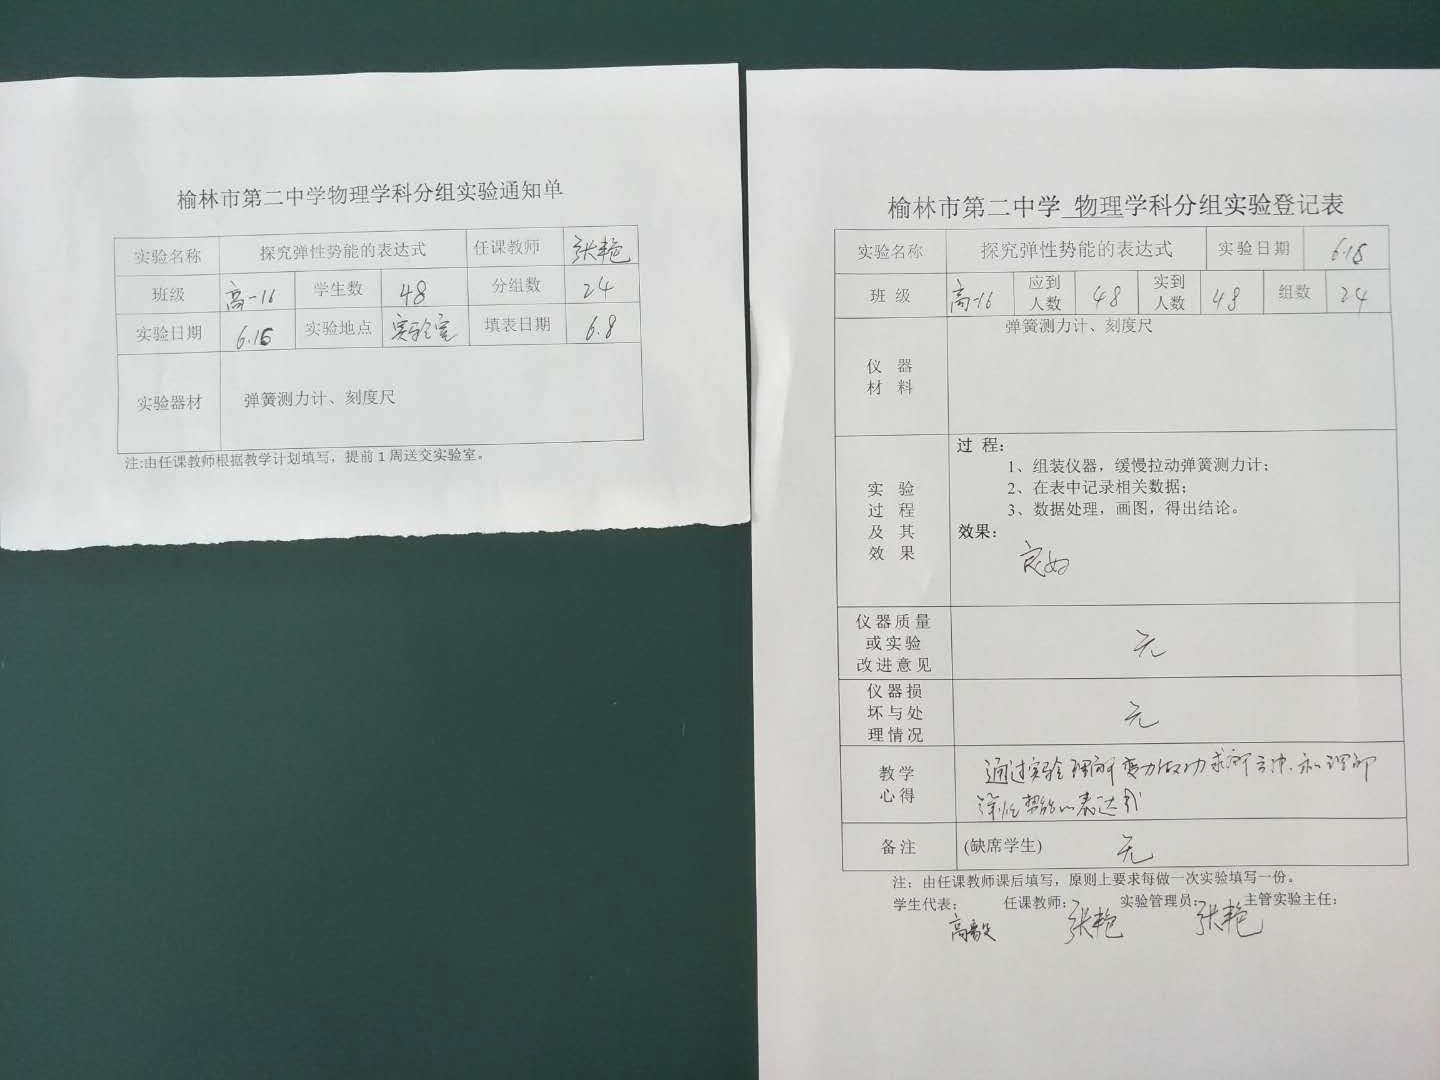 榆林市第二中学物理学科分组实验通知单
实验名称 探究弹性势能的表达式 任课教师 张艳
班级 高一16 学生数 48 分组数 24
实验日期 6.15 实验地点 实验室 填表日期 6.8
实验器材 弹簧测力计、刻度尺
注:由任课教师根据教学计划填写，提前1周送交实验室。
榆林市第二中学 物理学科分组实验登记表
实验名称 探究弹性势能的表达式 实验日期 6.15
班 级 高一16 应到人数 48 实到人数 48 组数 24
仪 器
材 料
弹簧测力计、刻度尺
实 验
过 程
及 其
效 果
过 程：
1、组装仪器，缓慢拉动弹簧测力计；
2、在表中记录相关数据；
3、数据处理，画图，得出结论。
效果：
良好
仪器质量
或实验
改进意见
无
仪器损
坏与处
理情况
无
教学
心得
通过实验理解变力做功求解方法.和理解
弹性势能的表达式
备注 (缺席学生) 无
注：由任课教师课后填写，原则上要求每做一次实验填写一份。
学生代表： 任课教师： 实验管理员： 主管实验主任：
张艳 张艳